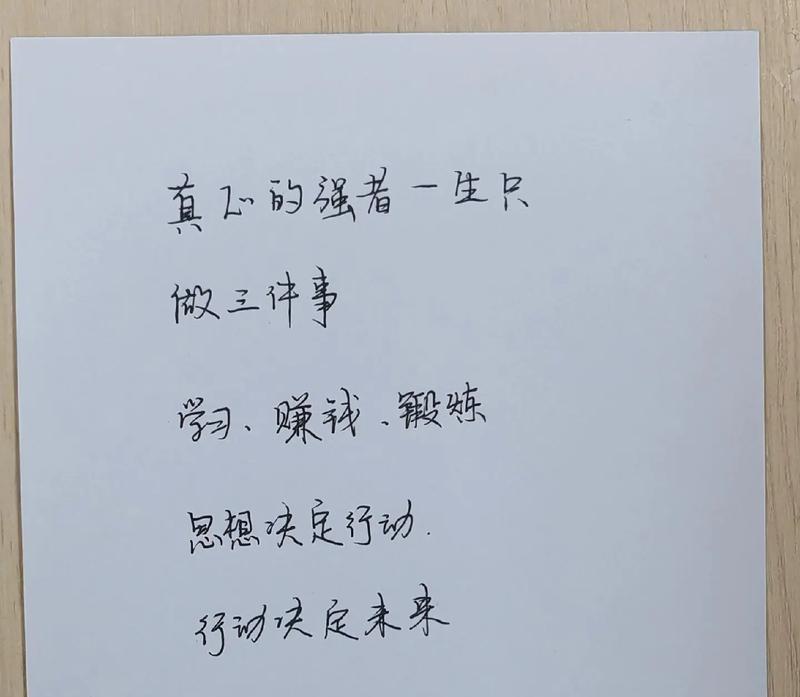 真正的强者一生只
做三件事
学习、赚钱、锻炼
思想决定行动.
行动决定未来